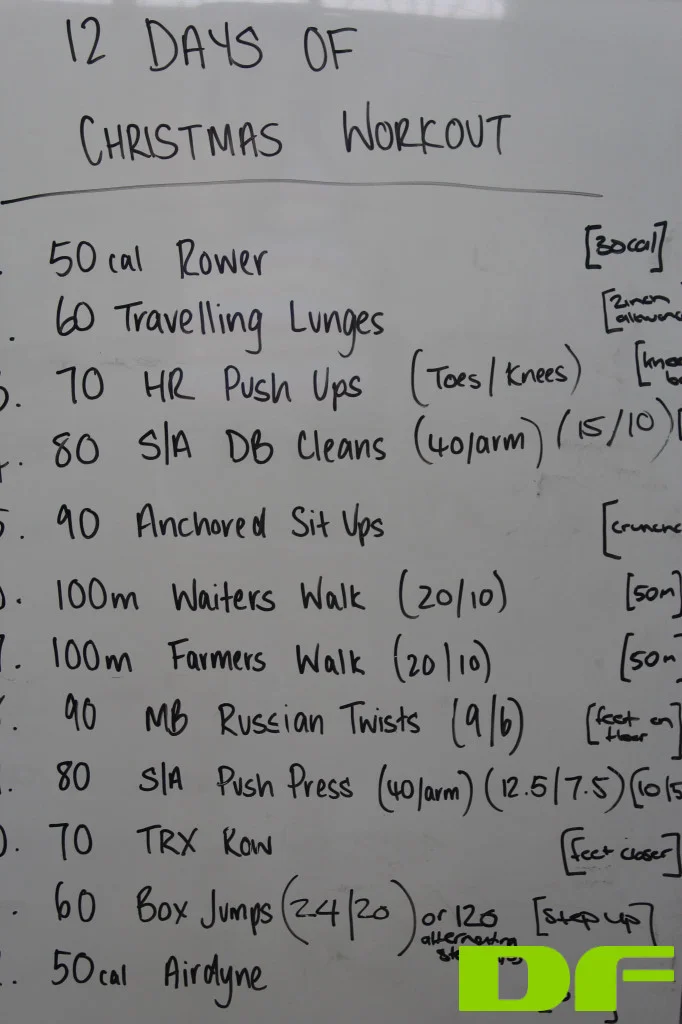 12 DAYS OF
CHRISTMAS WORKOUT
50 cal Rower [30cal]
60 Travelling Lunges [2 inch
70 HR Push Ups (Toes/Knees)
80 S/A DB Cleans (40/arm) (15/10) [
90 Anchored Sit Ups [
100m Waiters Walk (20/10) [50m]
100m Farmers Walk (20/10) [50m
90 MB Russian Twists (9/6) [feet on
floor]
80 S/A Push Press (40/arm) (12.5/7.5) [10/5
70 TRX Row [feet closer]
60 Box Jumps (24/20) or 120 [step up]
alternating
50cal Airdyne
DF